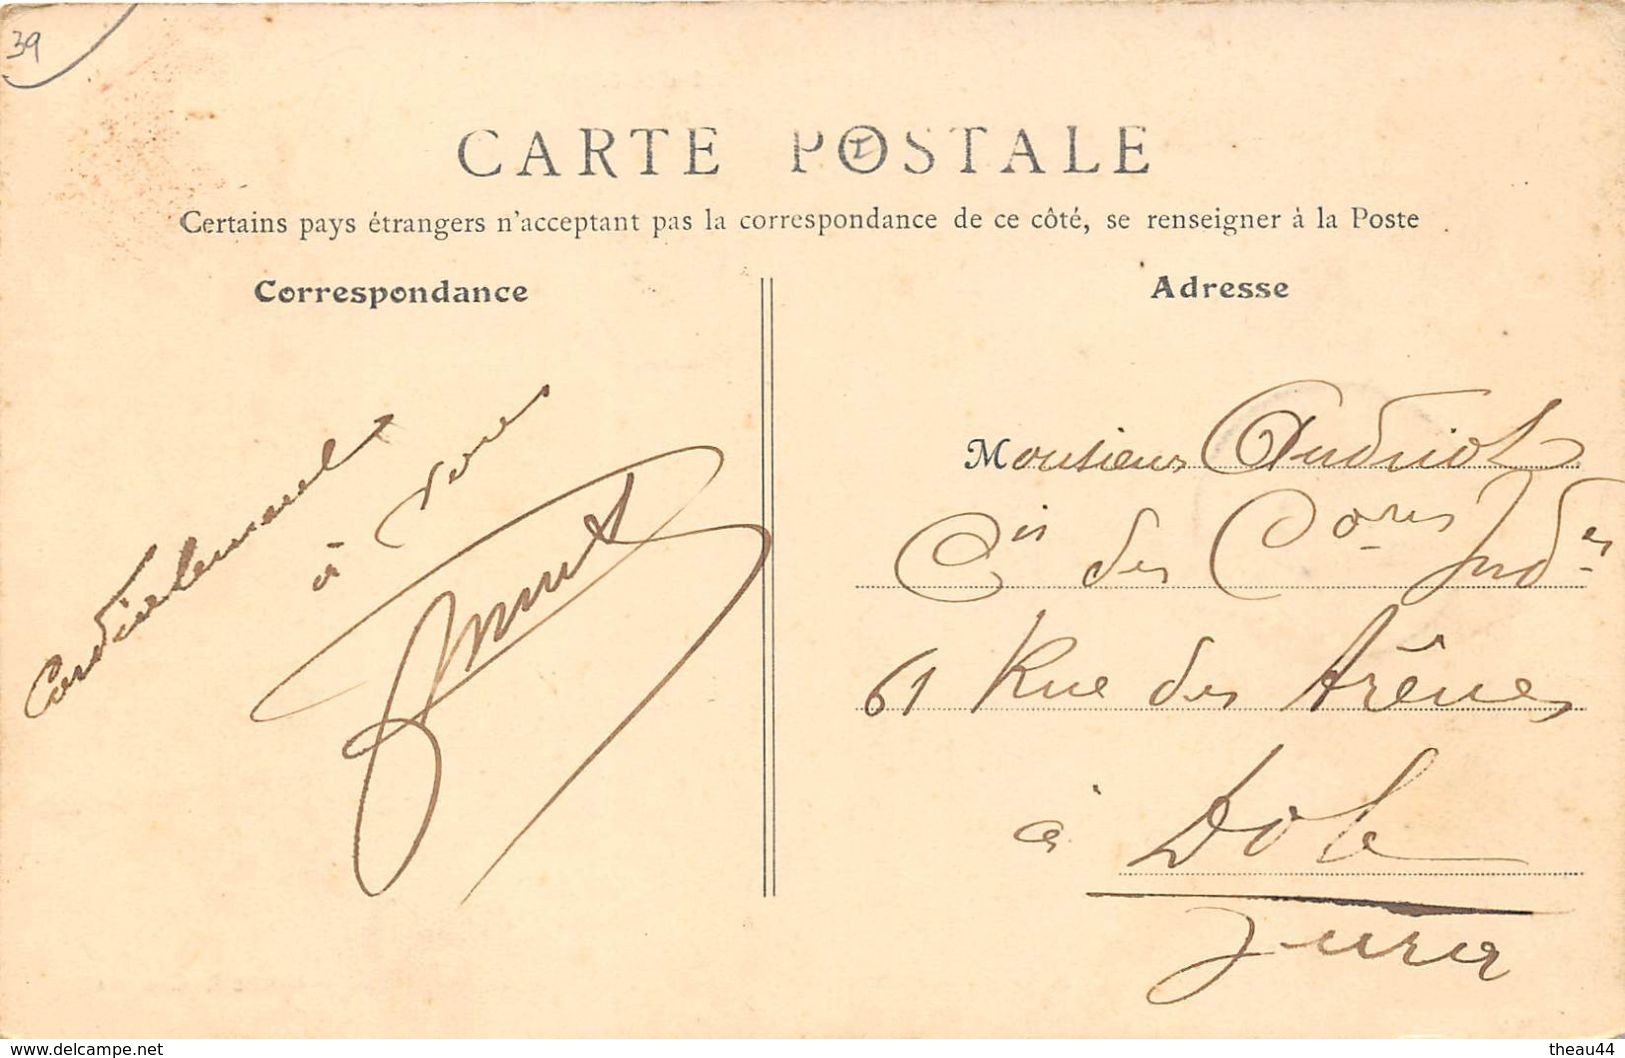 39
CARTE POSTALE
Certains pays étrangers n'acceptant pas la correspondance de ce côté, se renseigner à la Poste
Correspondance
Cordialement
à vous
Adresse
Monsieur Andriot
Cis des Cores Indes
61 Rue des Arênes
à Dole
Jura
www.delcampe.net
theau44